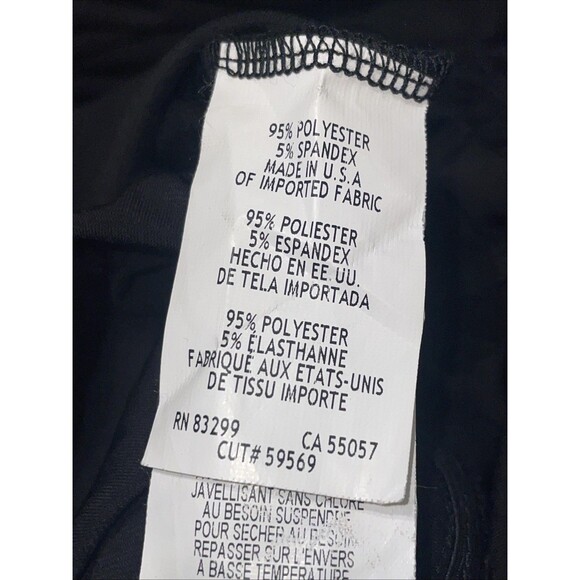 95% POLYESTER
5% SPANDEX
MADE IN U.S.A
OF IMPORTED FABRIC
95% POLIESTER
5% ESPANDEX
HECHO EN EE.UU.
DE TELA IMPORTADA
95% POLYESTER
5% ÉLASTHANNE
FABRIQUÉ AUX ETATS-UNIS
DE TISSU IMPORTE
RN 83299 CA 55057
CUT# 59569
JAVELLISANT SANS CHLORE
AU BESOIN SUSPENDRE
POUR SÉCHER AU BESOIN
REPASSER SUR L'ENVERS
A BASSE TEMPÉRATURE